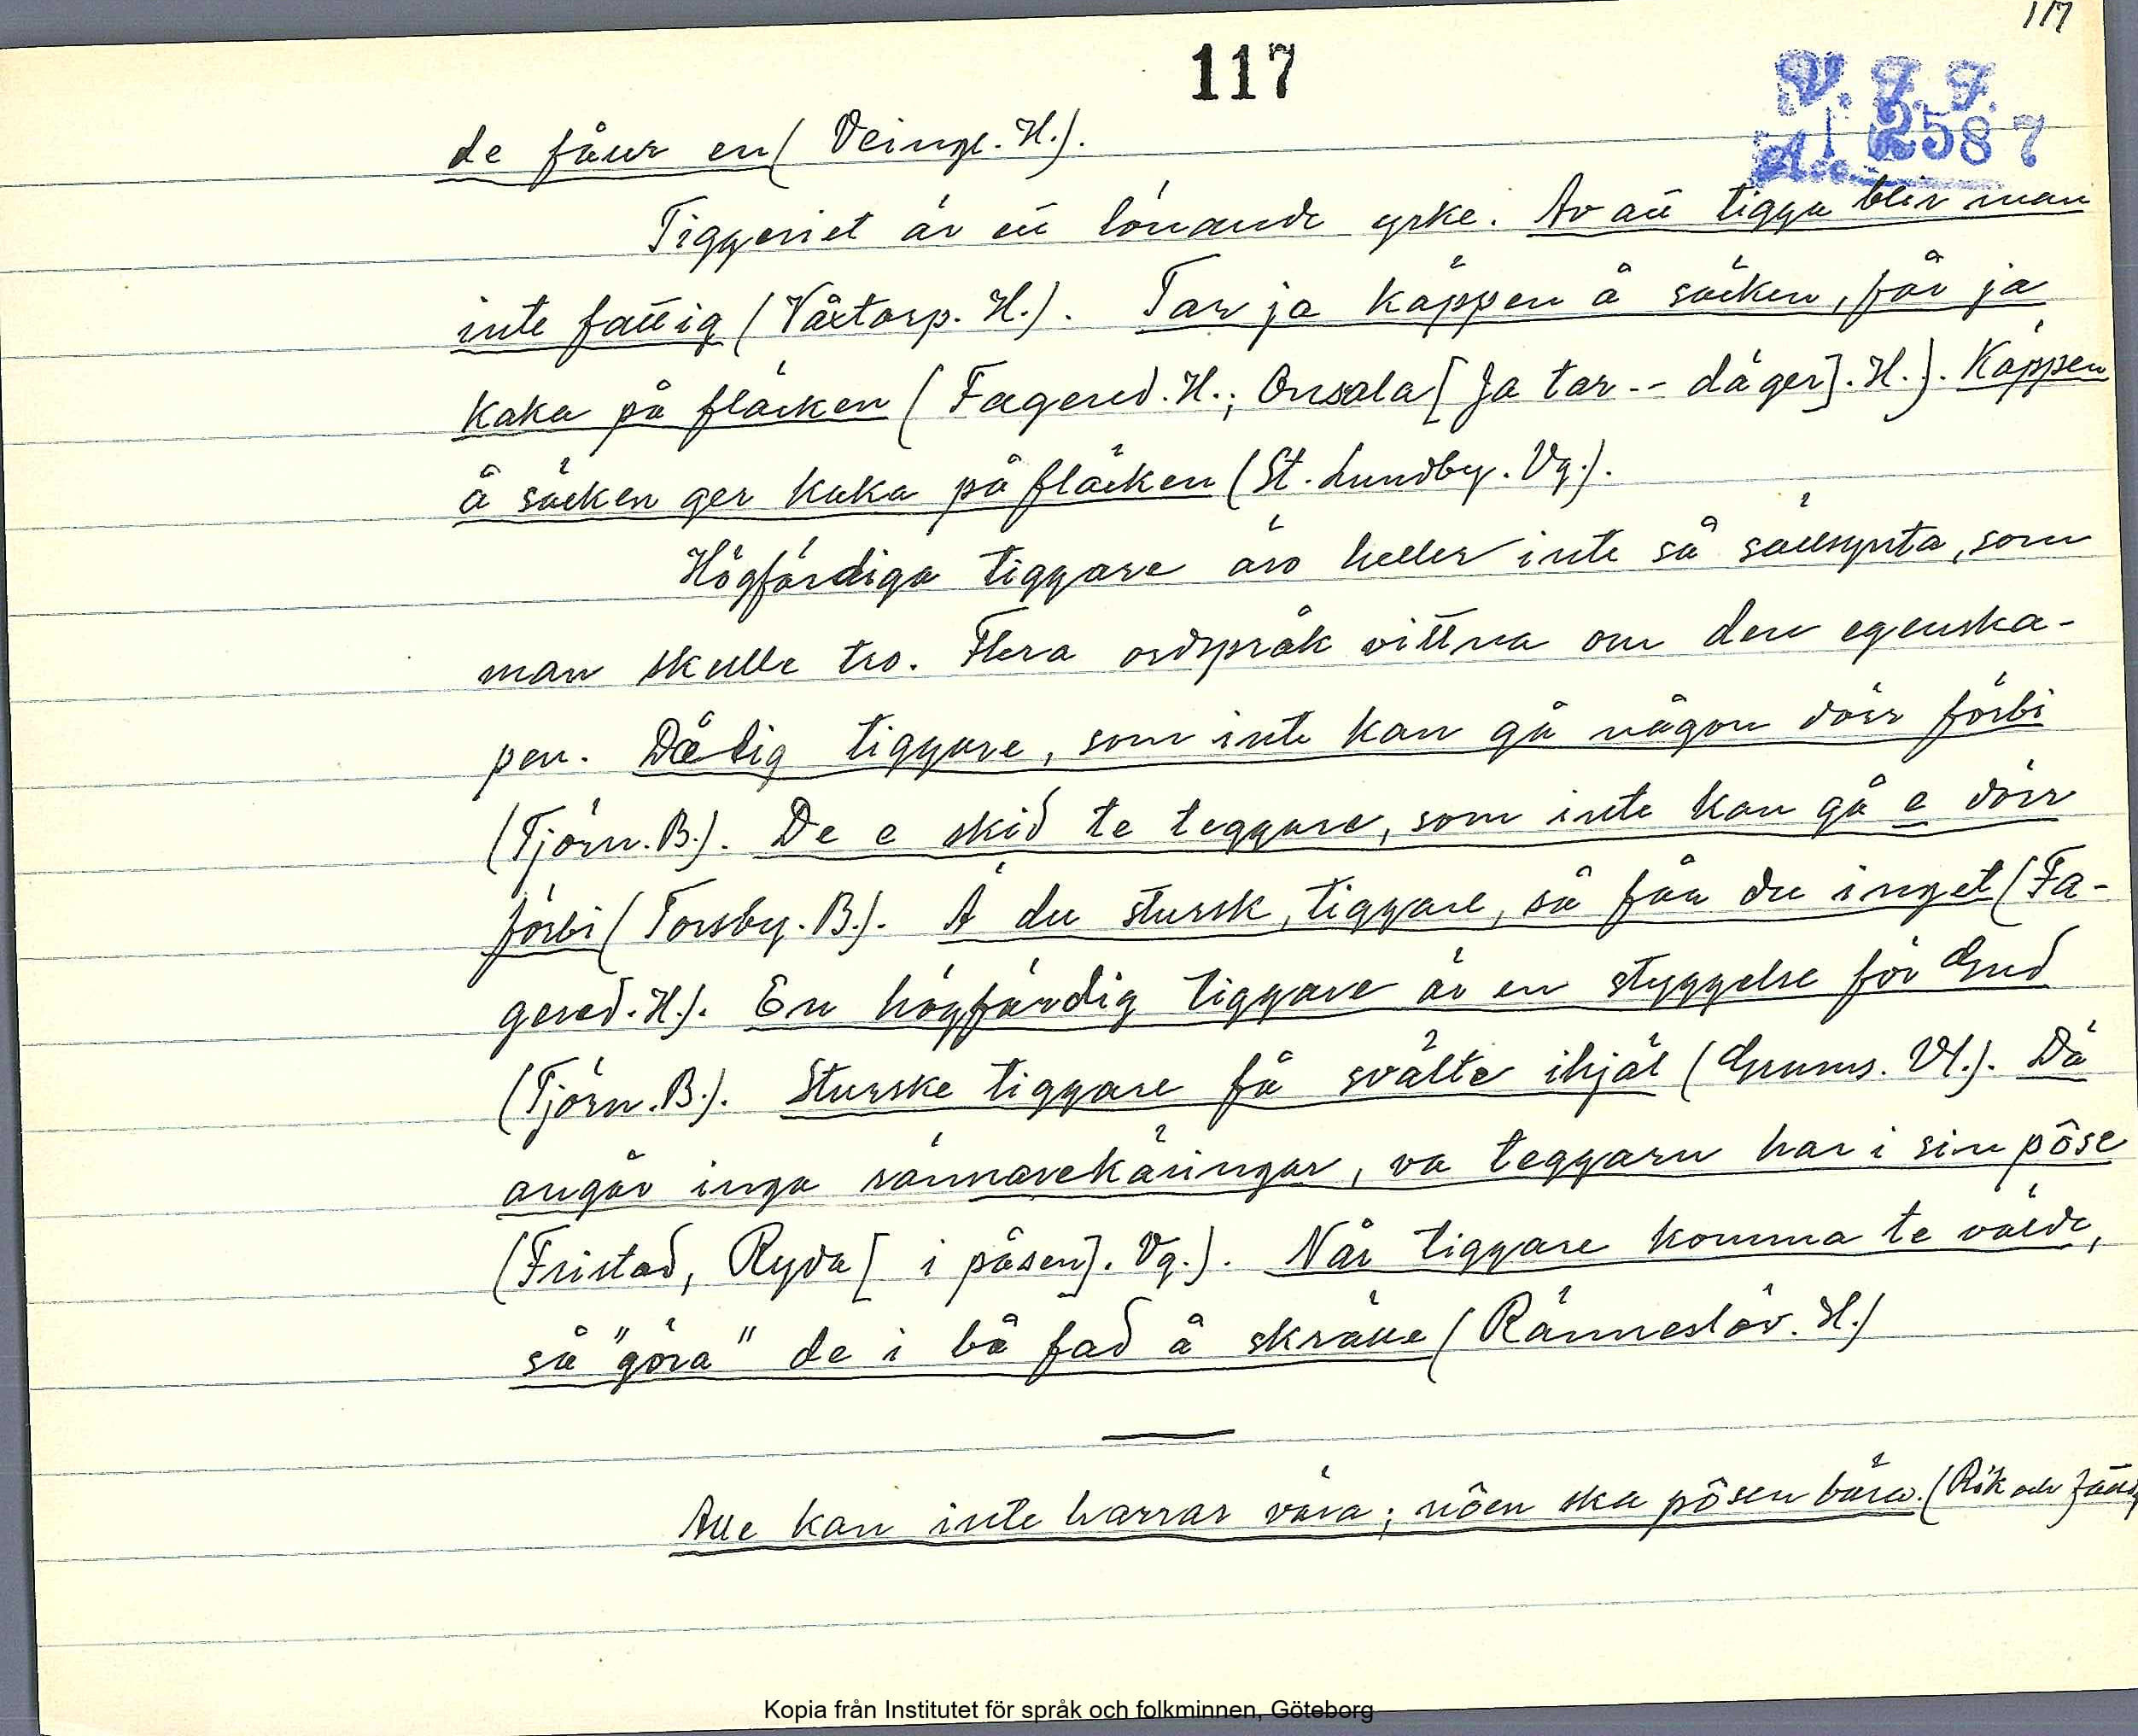 117
117
V. F. F.
Acc. 2587
de fåur en (Veinge. H.).
Tiggeriet är ett lönande yrke. Av att tigga blir man
inte fattig (Våxtorp. H.). Tar ja käppen å säcken, får ja
kaka på fläcken (Fagered. H.; Onsala [Ja tar -- däger]. H.). Käppen
å säcken ger kaka på fläcken (St. Lundby. Vg.).
Högfärdiga tiggare äro heller inte så sällsynta, som
man skulle tro. Flera ordspråk vittna om den egenska-
pen. Dålig tiggare, som inte kan gå någon dörr förbi
(Tjörn. B.). De e skid te teggare, som inte kan gå e dörr
förbi (Torsby. B.). Ä du stursk, tiggare, så får du inget (Fa-
gered. H.). En högfärdig tiggare är en styggelse för Gud
(Tjörn. B.). Sturske tiggare få svälte ihjäl (Grums. Vl.). Dä
angår inga rännarekäringar, va teggarn har i sin påse
(Fristad, Ryda [i påsen]. Vg.). När tiggare komma te välde,
så "göra" de i bå fad å skrälle (Ränneslöv. H.)
Alle kan inte harrar våra; nöen ska påsen bära. (Rik och fattig
Kopia från Institutet för språk och folkminnen, Göteborg